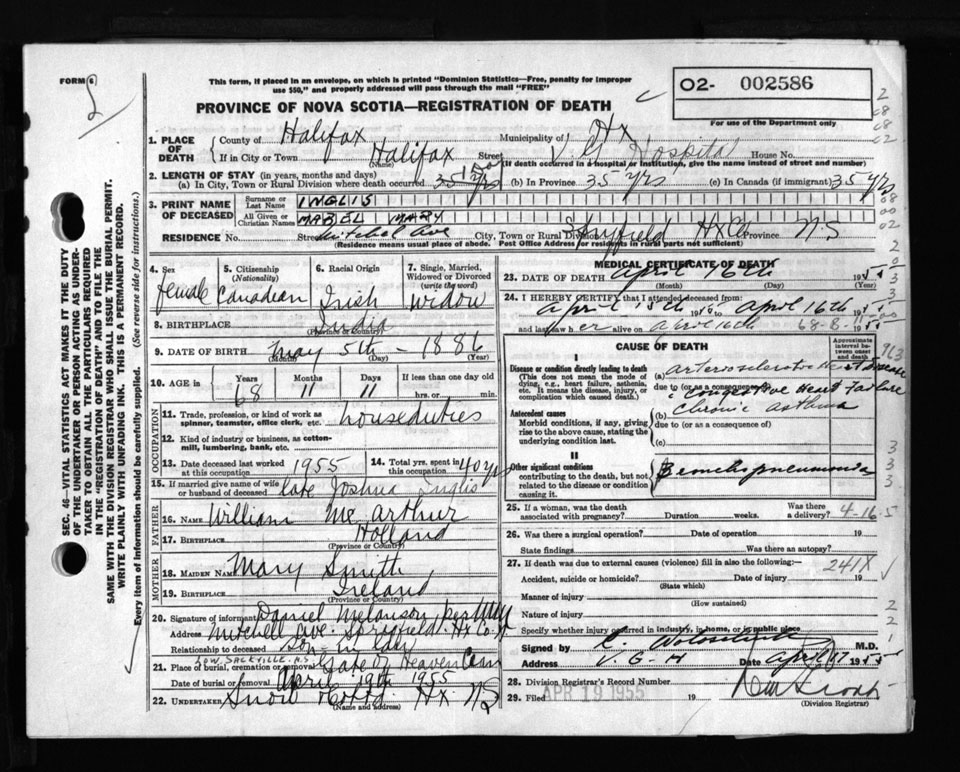 FORM 6
2
This form, if placed in an envelope, on which is printed "Dominion Statistics—Free, penalty for improper
use $50," and properly addressed will pass through the mail "FREE"
PROVINCE OF NOVA SCOTIA—REGISTRATION OF DEATH
O2- 002586
For use of the Department only
1. PLACE OF DEATH
County of Halifax Municipality of Hx
If in City or Town Halifax Street V.G. Hospital House No.
(Name) (If death occurred in a hospital or institution, give the name instead of street and number)
2. LENGTH OF STAY (in years, months and days)
(a) In City, Town or Rural Division where death occurred (b) In Province 35 yrs (c) In Canada (if immigrant) 35 yrs
3. PRINT NAME OF DECEASED
Surname or Last Name INGLIS
All Given or Christian Names MABEL MARY
RESIDENCE No. Street Mitchel Ave City, Town or Rural Division Hx Co Province N.S
(Residence means usual place of abode. Post Office Address for residents in rural parts not sufficient)
4. Sex female
5. Citizenship (Nationality) Canadian
6. Racial Origin Irish
7. Single, Married, Widowed or Divorced (write the word) widow
8. BIRTHPLACE India
(Province or Country)
9. DATE OF BIRTH May 5th - 1886
(Month) (Day) (Year)
10. AGE in Years 68 Months 11 Days 11 If less than one day old
hrs. or min.
OCCUPATION
11. Trade, profession, or kind of work as
spinner, teamster, office clerk, etc. houseduties
12. Kind of industry or business, as cotton-
mill, lumbering, bank, etc.
13. Date deceased last worked at this occupation 1955
14. Total yrs. spent in this occupation 40 yrs
15. If married give name of wife or husband of deceased late Joshua Inglis
FATHER
16. NAME William Mc Arthur
17. BIRTHPLACE Holland
(Province or Country)
MOTHER
18. MAIDEN NAME Mary Smith
19. BIRTHPLACE Ireland
(Province or Country)
20. Signature of informant Daniel Melanson
Address Mitchell Ave. Spryfield. Hx Co.
Relationship to deceased son in law
LOW. SACKVILLE. N.S.
21. Place of burial, cremation or removal Gate of Heaven Cem
Date of burial or removal April 19th 1955
22. UNDERTAKER Snow Hx NS
(Name and address)
MEDICAL CERTIFICATE OF DEATH
23. DATE OF DEATH April 16th 1955
(Month) (Day) (Year)
24. I HEREBY CERTIFY that I attended deceased from:
April 15th to April 16th 1955
and last saw her alive on April 16th 1955
68-8-
CAUSE OF DEATH
Approximate interval between onset and death
I
Disease or condition directly leading to death
(This does not mean the mode of dying, e.g., heart failure, asthenia, etc. It means the disease, injury, or complication which caused death.)
(a) arteriosclerotic Heart disease
due to (or as a consequence of)
congestive Heart Failure
Antecedent causes
Morbid conditions, if any, giving rise to the above cause, stating the underlying condition last.
(b) chronic asthma
due to (or as a consequence of)
(c)
II
Other significant conditions
contributing to the death, but not related to the disease or condition causing it.
Bronchopneumonia
25. If a woman, was the death associated with pregnancy? Duration weeks. Was there a delivery?
4-16-5
26. Was there a surgical operation? Date of operation 19
State findings Was there an autopsy?
27. If death was due to external causes (violence) fill in also the following:—
241X
Accident, suicide or homicide? Date of injury 19
(State which)
Manner of injury
(How sustained)
Nature of injury
Specify whether injury occurred in industry, in home, or in public place
Signed by M.D.
Address V.G.H Date April 17 1955
28. Division Registrar's Record Number
29. Filed APR 19 1955 19
(Division Registrar)
SEC. 46—VITAL STATISTICS ACT MAKES IT THE DUTY
OF THE UNDERTAKER OR PERSON ACTING AS UNDER-
TAKER TO OBTAIN ALL THE PARTICULARS REQUIRED
IN THE "REGISTRATION OF DEATH" AND TO FILE THE
SAME WITH THE DIVISION REGISTRAR WHO SHALL ISSUE THE BURIAL PERMIT.
WRITE PLAINLY WITH UNFADING INK. THIS IS A PERMANENT RECORD.
Every item of information should be carefully supplied. (See reverse side for instructions).